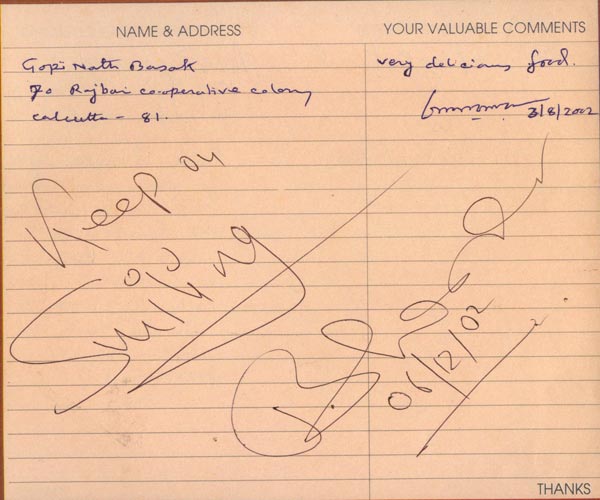 NAME & ADDRESS
YOUR VALUABLE COMMENTS
Gopi Nath Basak
very delicious food.
70 Rajbari co-operative colony
calcutta - 81.
3/8/2002
Keep on
Smiling
06/12/02
THANKS